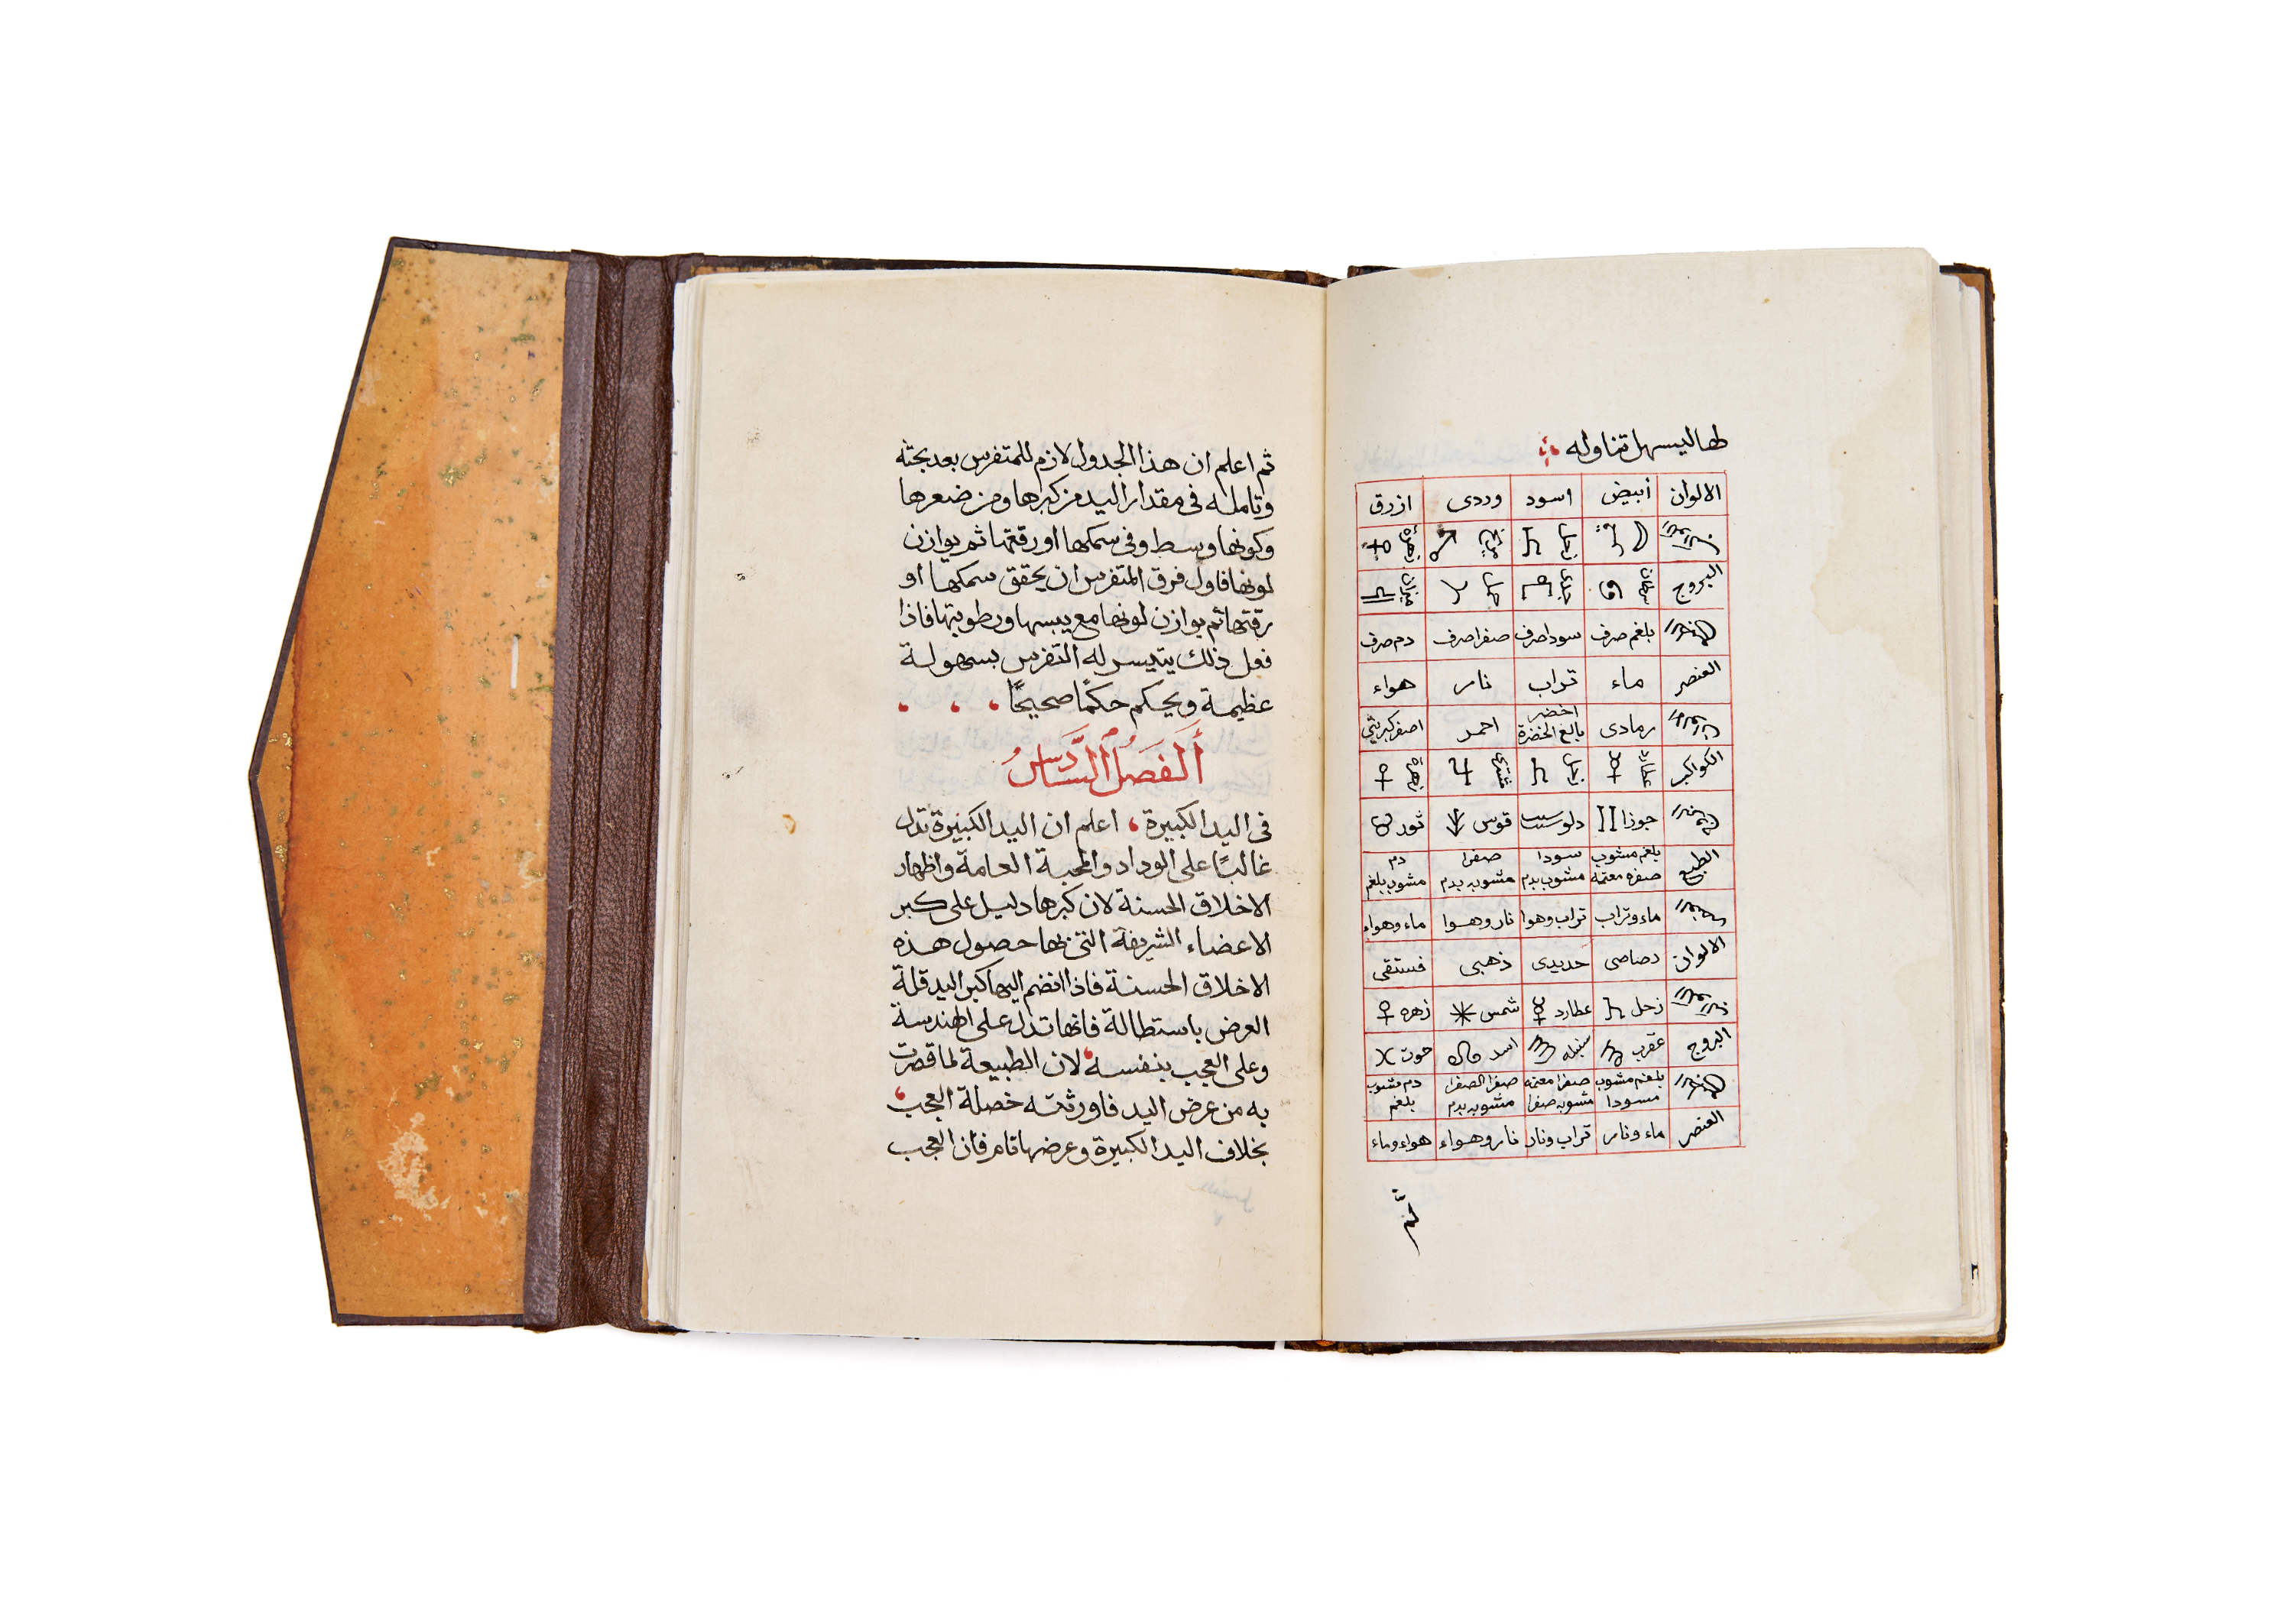 طها ليسهل تناوله
الالوان أبيض اسود وردى ازرق
زحل مريخ زهرة
البروج سرطان جدى حمل ميزان
بلغم صرف سودا صرف صفرا صرف دم صرف
العنصر ماء تراب نار هواء
رمادى اخضر بالغ الخضرة احمر اصفر كبريتي
الكواكب عطارد زحل مشترى زهرة
جوزا دلو قوس ثور
الطبع بلغم مشوب صفره معتمه سودا مشوب بدم صفرا مشوبه بدم دم مشوب بلغم
ماء وتراب تراب وهوا نار وهوا ماء وهواء
الالوان رصاصى حديدى ذهبى فستقى
زحل عطارد شمس زهره
البروج عقرب سنبله اسد حوت
بلغم مشوب سودا صفرا معتمه مشوبه صفرا صفرا الصفرا مشوبه بدم دم مشوب بلغم
العنصر ماء ونار تراب ونار نار وهواء هواء وماء
ثم
ثم اعلم ان هذا الجدول لازم للمتفرس بعد بحثه
وتامله فى مقدار اليد من كبرها ومن صغرها
وكونها وسط وفى سمكها او رقتها ثم يوازن
لونها فاول فرق المتفرس ان يحقق سمكها او
رقتها ثم يوازن لونها مع يبسها ورطوبتها فاذا
فعل ذلك يتيسر له التفرس بسهولة
عظيمة ويحكم حكمًا صحيحًا
اَلْفَصْلُ السَّادِسُ
فى اليد الكبيرة، اعلم ان اليد الكبيرة تدل
غالبًا على الوداد والمحبة العامة واظهار
الاخلاق الحسنة لان كبرها دليل على كبر
الاعضاء الشريفة التى بها حصول هذه
الاخلاق الحسنة فاذا انضم اليها كبر اليد قلة
العرض باستطالة فانها تدل على الهندسة
وعلى العجب بنفسه، لان الطبيعة لما قصرت
به من عرض اليد فاورثته خصلة العجب،
بخلاف اليد الكبيرة وعرضها تام فان العجب